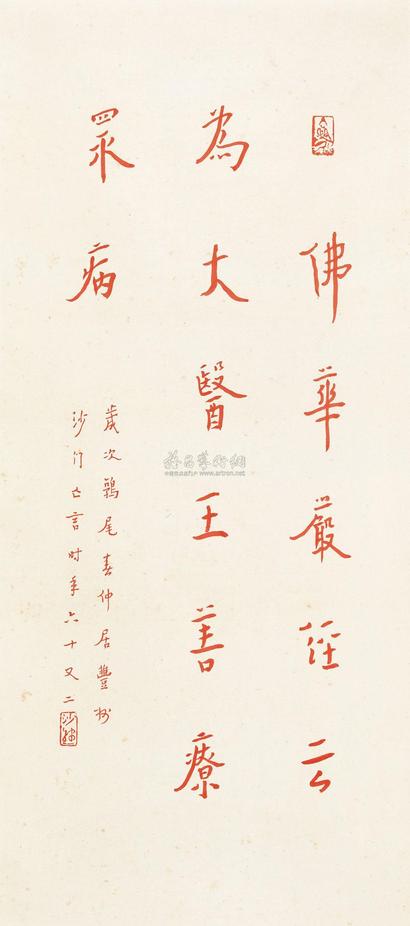 佛華嚴經云
為大醫王善療
眾病
歲次鶉尾春仲居豐州
沙門亡言時年六十又二
雅昌藝術網
www.artron.net